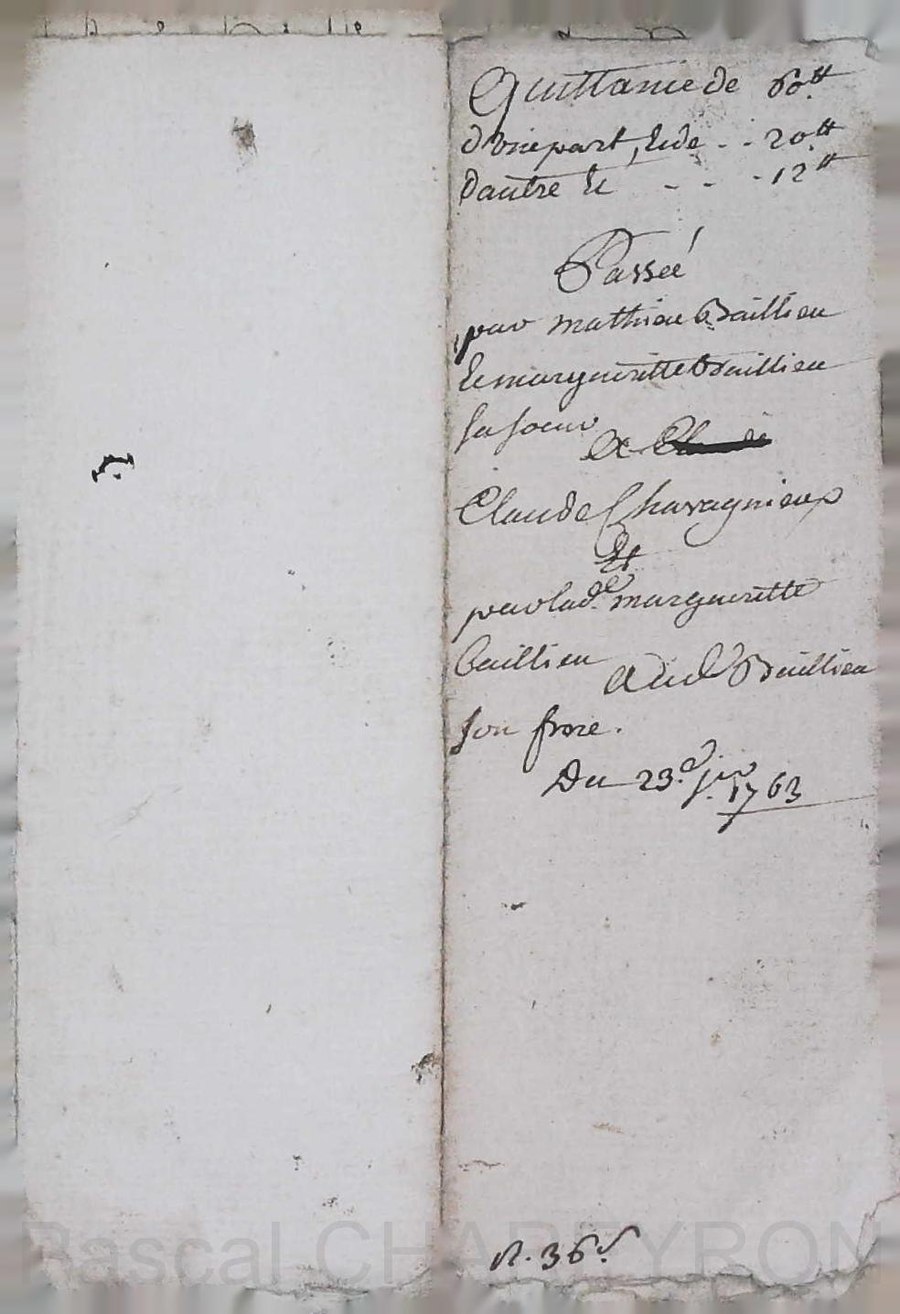 Quittance de 60₶
d'une part, & de - - 20₶
d'autre & - - - 12₶
Passéé
par mathieu Baillieu
& margueritte Baillieu
sa soeur
a
Claude Chavagnieux
Et
par lad.e margueritte
baillieu aud.t Baillieu
son frere.
Du 23.e 1763
n. 36.
Pascal CHAREYRON